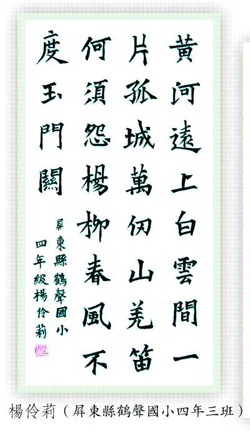 黃河遠上白雲間一
片孤城萬仞山羌笛
何須怨楊柳春風不
度玉門關
屏東縣鶴聲國小
四年級楊伶莉
楊伶莉（屏東縣鶴聲國小四年三班）